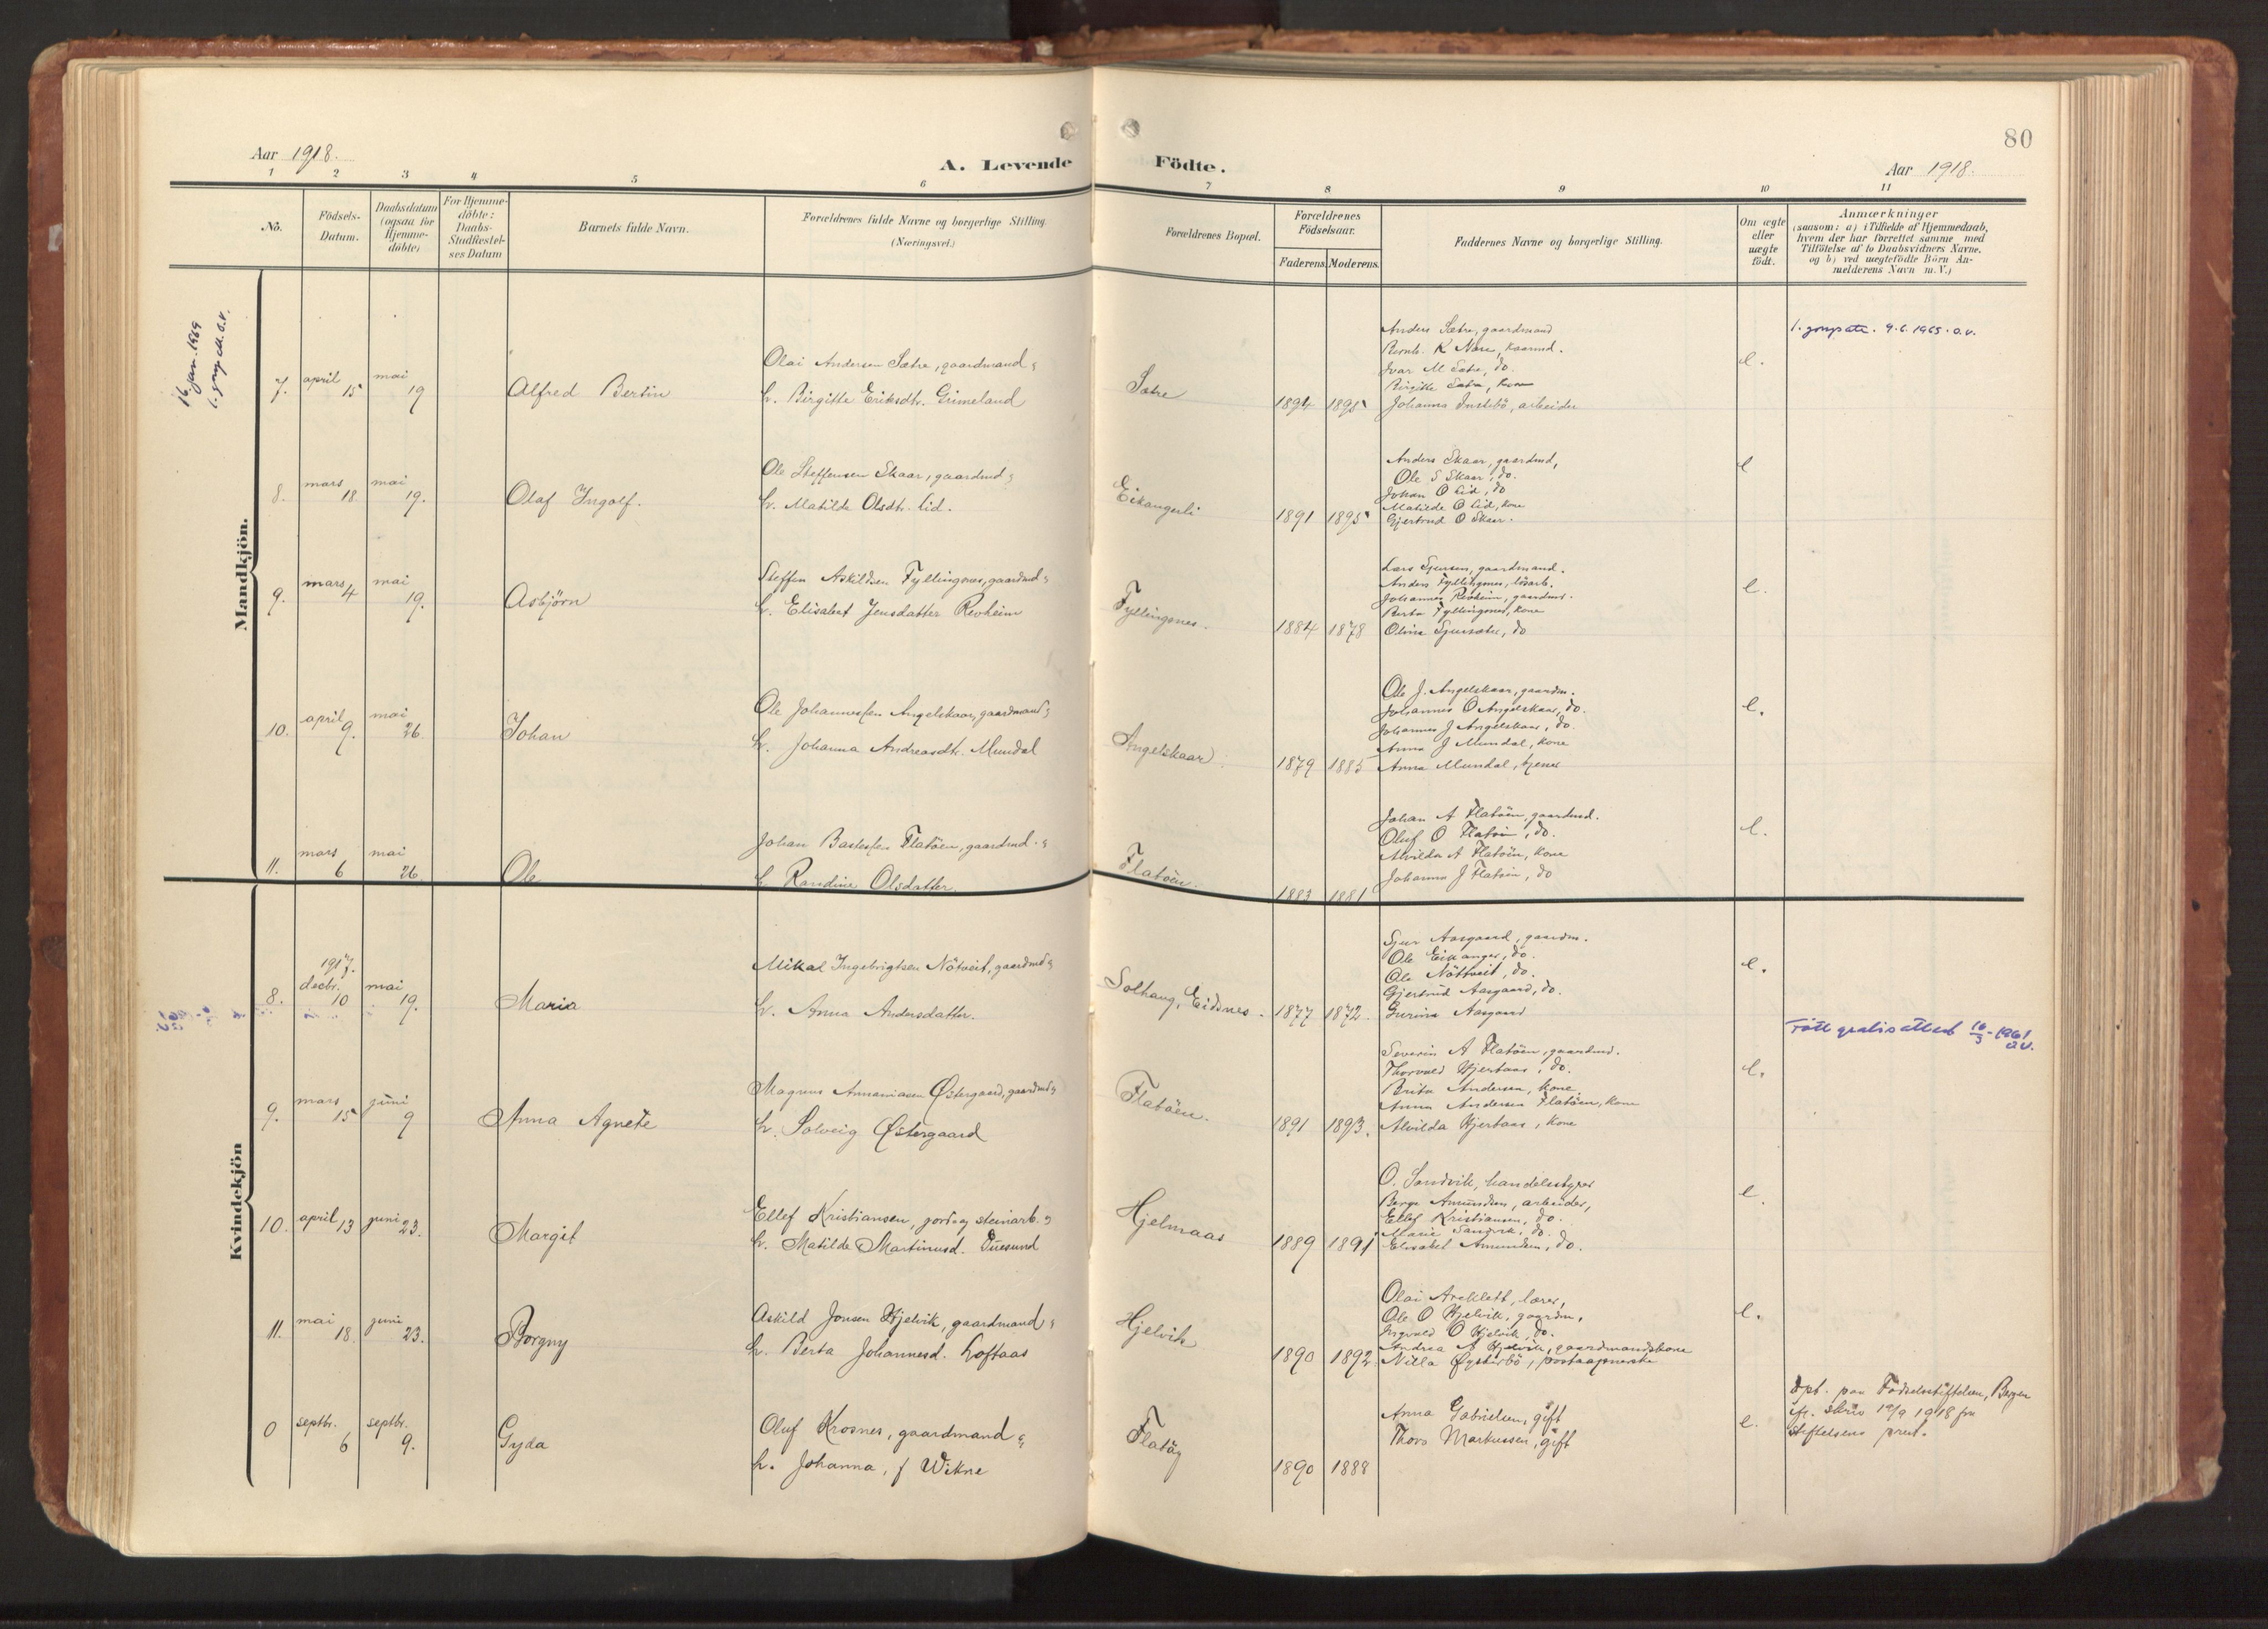 80
Aar 1918.
A. Levende Födte.
Aar 1918.
1 2 3 4 5 6 7 8 9 10 11
No.
Födsels-Datum.
Daabsdatum (ogsaa for Hjemme-döbte)
For Hjemme-döbte: Daabs-Stadfæstel-ses Datum
Barnets fulde Navn.
Forældrenes fulde Navne og borgerlige Stilling. (Næringsvei.)
Forældrenes Bopæl.
Forældrenes Födselsaar.
Faderens. Moderens.
Faddernes Navne og borgerlige Stilling.
Om ægte eller uægte födt.
Anmærkninger
(saasom: a) i Tilfælde af Hjemmedaab,
hvem der har forrettet samme med
Tilföielse af to Daabsvidners Navne,
og b) ved uægtefödte Börn An-
melderens Navn m. V.)
Mandkjön.
16. jan. 1969
7. april 15 mai 19 Alfred Bertin
Olai Andersen Sætre, gaardmand
h. Birgitte Eriksdtr. Grimeland
Sætre
1894 1895
Anders Sætre, gaardmand
Ivar M Sætre, do.
Birgitte Sætre, kone
Johannes Instebö, arbeider
e.
9.6.1965. O.V.
8. mars 18 mai 19. Olaf Ingolf.
Ole Steffensen Skaar, gaardmd
h. Matilde Olsdtr. Lid.
Eikangerli
1891 1895
Anders Skaar, gaardmd,
Ole S Skaar, do.
Johan O Lid, do
Matilde O Lid, kone
Gjertrud O Skaar.
e
9. mars 4 mai 19. Asbjörn
Steffen Askildsen Fyllingsnes, gaardmd
h. Elisabet Jensdatter Revheim
Fyllingsnes.
1884 1878
Lars Sjursen, gaardmand.
Anders Fyllingsnes, lösarb.
Johannes Revheim, gaardm.
Berta Fyllingsnes, kone
Olina Sjursætre, do
e.
10. april 9. mai 26. Johan
Ole Johannessen Angelskaar, gaardmand
h. Johanna Andreasdtr. Mundal
Angelskaar
1879 1885
Ole J. Angelskaar, gaardm.
Johannes O Angelskaar, do.
Johannes J Angelskaar, do.
Anna J Mundal, kone
Anna Mundal, tjener
e.
11. mars 6 mai 26. Ole
Johan Bastessen Flatöen, gaardmd.
h Randine Olsdatter.
Flatöen.
1883 1881
Johan A Flatöen, gaardmd.
Oluf O Flatöen, do.
Alvilda A Flatöen, kone
Johanna J Flatöen, do
e.
Kvindekjön
8. 1917. decbr. 10 mai 19. Maria
Mikal Ingebrigtsen Nötveit, gaardmd
h. Anna Andersdatter.
Solhaug, Eidsnes.
1877 1872.
Sjur Aasgaard, gaardm.
Ole Eikanger, do.
Ole Nöttveit, do.
Gjertrud Aasgaard, do.
Gurina Aasgaard
e.
Fått gratis attest 16/3-1961
O.V.
9. mars 15 juni 9 Anna Agnete
Magnus Annaniasen Østergaard, gaardmd
h. Solveig Østergaard
Flatöen.
1891 1893.
Severin A Flatöen, gaardmd.
Thorvald Hjertaas, do.
Brita Andersen, kone
Anna Andersen Flatöen, kone
Alvilda Hjertaas, kone
e.
10. april 13 juni 23. Margit
Ellef Kristiansen, jord og steinarb.
h. Matilde Martinusd. Duesund
Hjelmaas
1889 1891
O. Sandvik, handelsstyrer
Berge Amundsen, arbeider,
Ellef Kristiansen, do.
Marie Sandvik, do.
Elisabet Amundsen, do.
e.
11. mai 18. juni 23. Borgny
Askild Jonsen Hjelvik, gaardmand
h. Berta Johannesd. Loftaas
Hjelvik
1890 1892.
Olai Areklett, lærer,
Ole O Hjelvik, gaardm,
Ingvald O Hjelvik, do.
Andrea A Hjelvik, gaardmandskone
Nilla Øysterbö, postaapnerske
e.
0 septbr. 6 septbr. 9. Gyda
Oluf Krosnes, gaardmand
h. Johanna, f Wikne
Flatöy
1890 1888
Anna Gabrielsen, gift
Thora Markussen, gift
e.
Döpt. paa Födselsstiftelsen, Bergen
if. skriv 19/9 1918 fra
Stiftelsens prest.